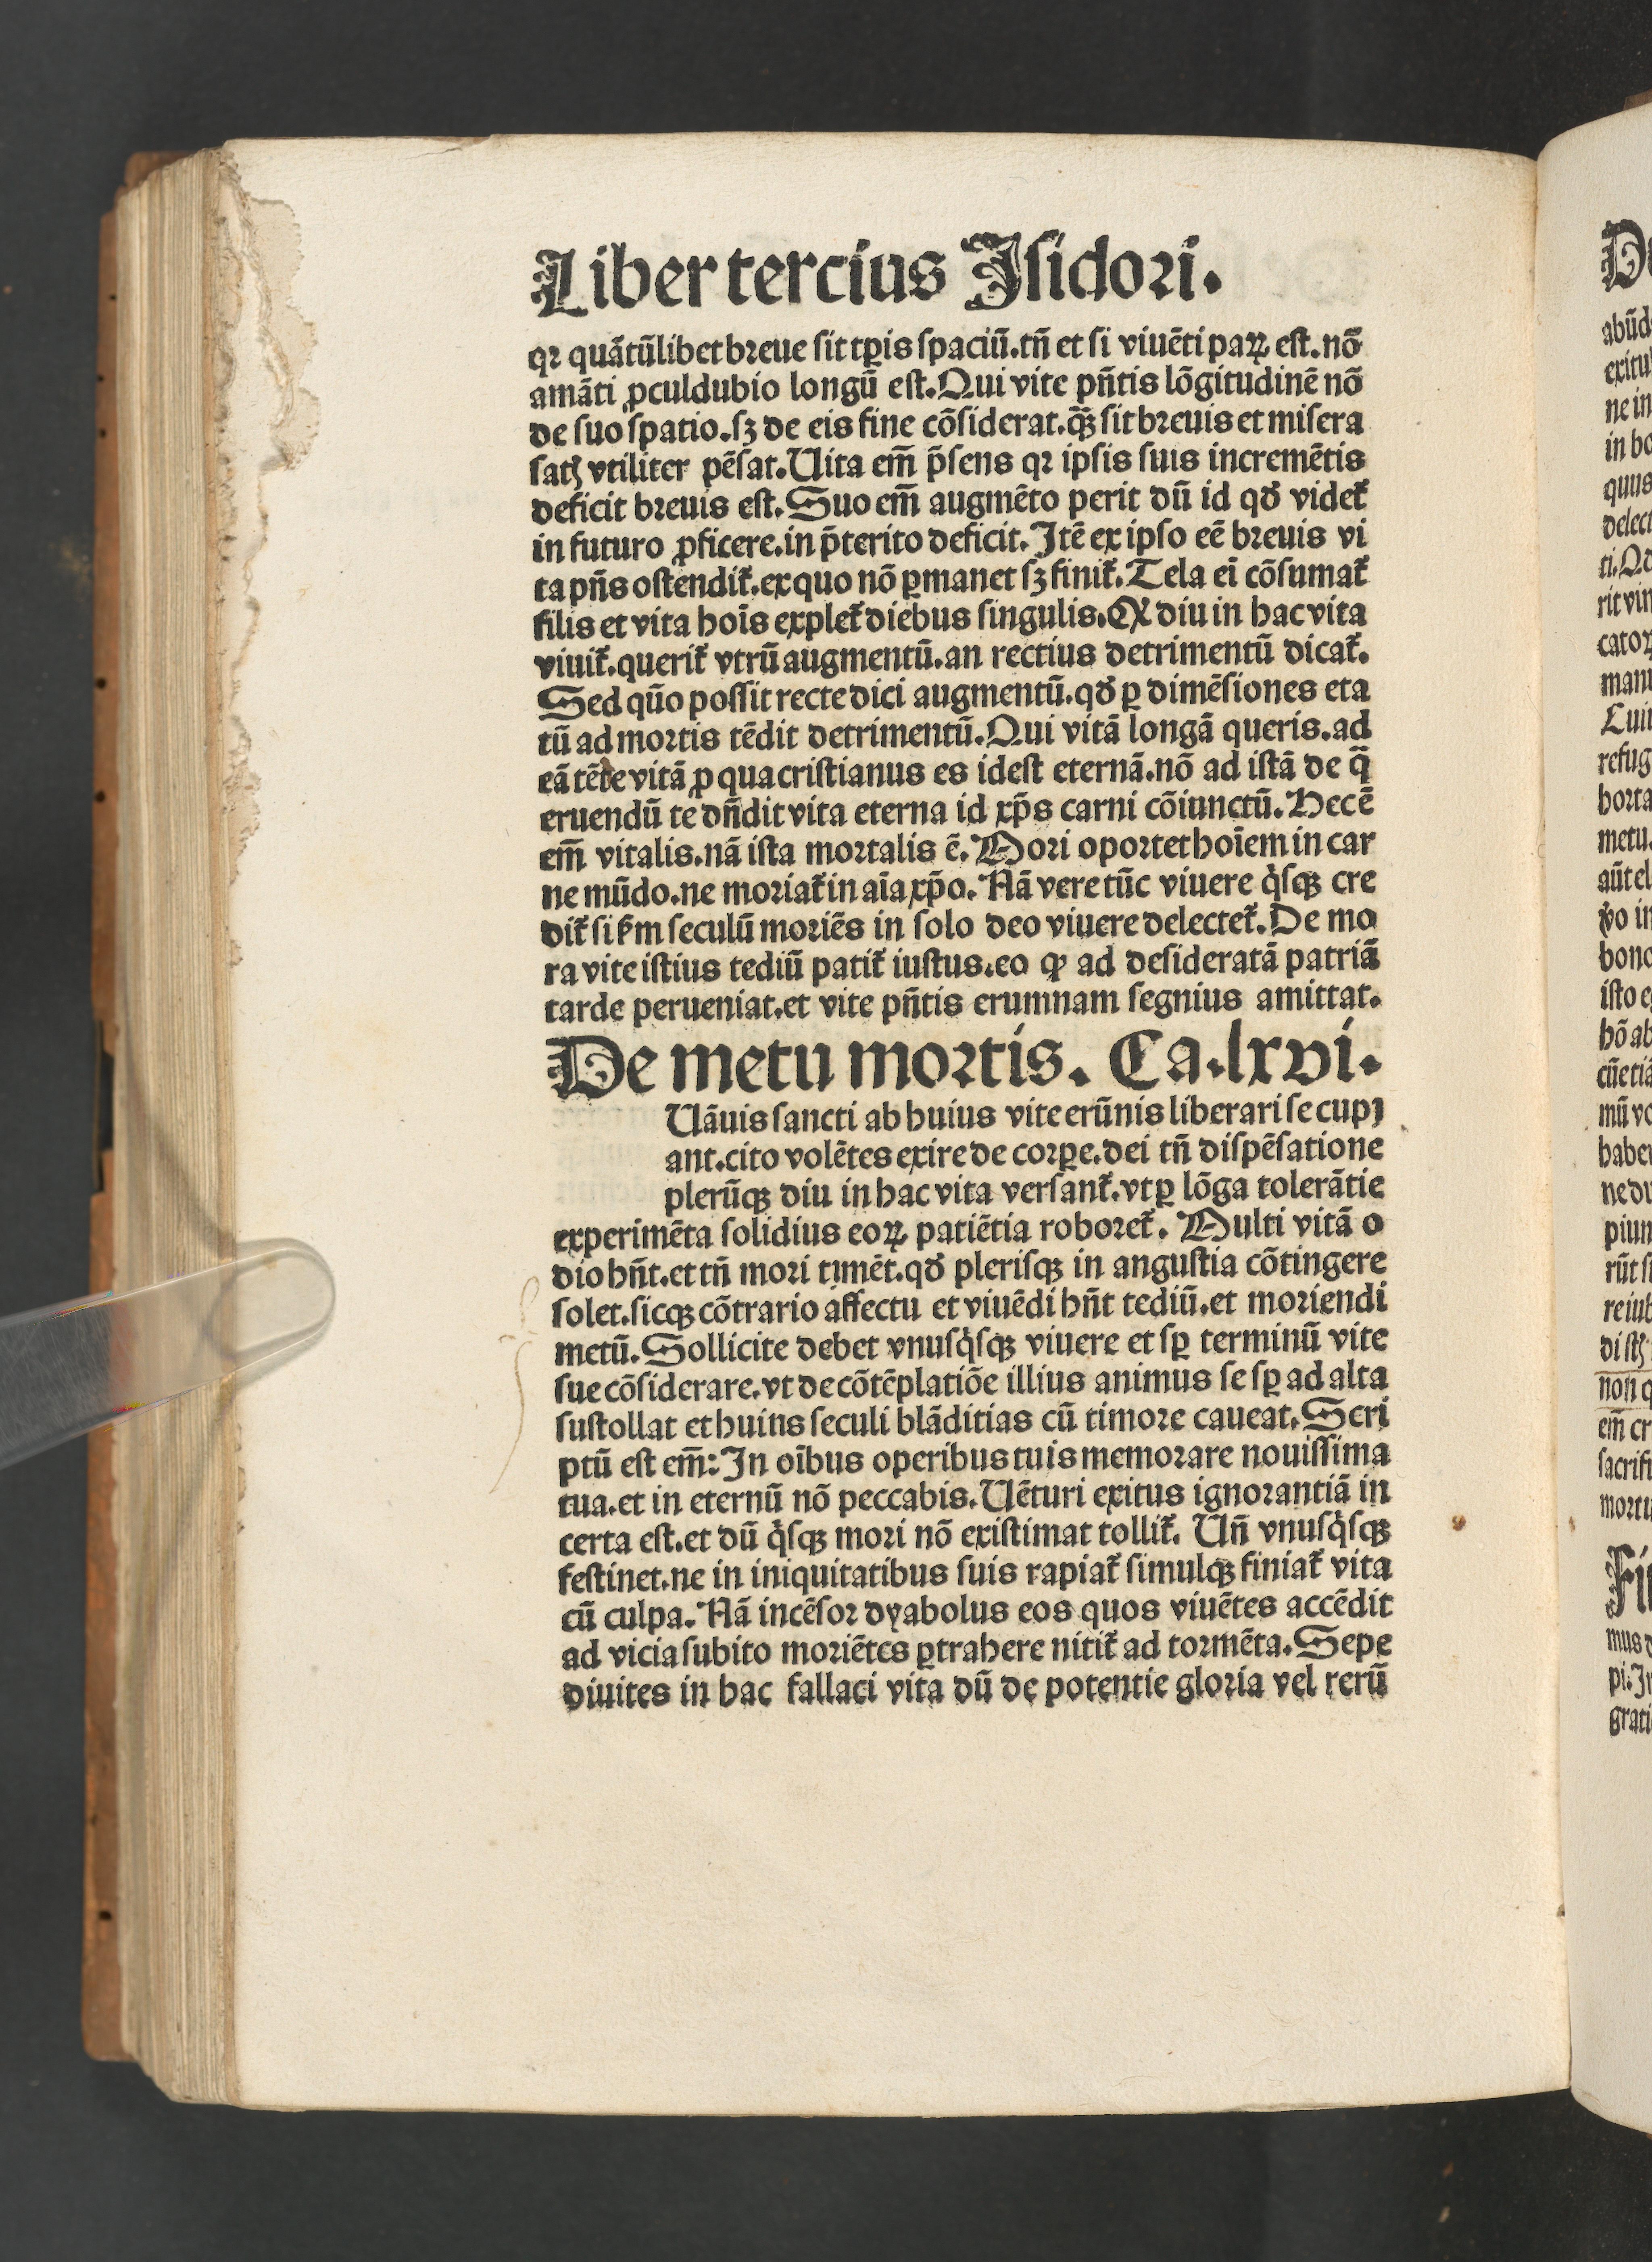 Liber tercius Isidori.
qꝛ quãtũlibet breue sit tꝑis spaciũ.tñ et si viuẽti paꝝ est.nõ
amãti ꝓculdubio longũ est.Qui vite pñtis lõgitudinẽ nõ
de suo spatio.sꝫ de eis fine cõsiderat.q̃ꝫ sit breuis et misera
satꝭ vtiliter pẽsat.Uita em̃ p̃sens qꝛ ipsis suis incremẽtis
deficit breuis est.Suo em̃ augmẽto perit dũ id qð videt᷑
in futuro ꝓficere.in p̃terito deficit.Itẽ ex ipso eẽ breuis vi
ta pñs ostendit᷑.ex quo nõ ꝑmanet sꝫ finit᷑.Tela ei̅ cõsumat᷑
filis et vita hoi̅s explet᷑ diebus singulis.Qꝫ diu in hac vita
viuit᷑.querit᷑ vtrũ augmentũ.an rectius detrimentũ dicat᷑.
Sed qũo possit recte dici augmentũ.qð ꝑ dimẽsiones eta
tũ ad mortis tẽdit detrimentũ.Qui vitã longã queris.ad
eã tẽde vitã ꝓ qua cristianus es idest eternã.nõ ad istã de q̃
eruendũ te dñdit vita eterna id xp̃s carni cõiunctũ.Hec ẽ
em̃ vitalis.nã ista mortalis ẽ.Mori oportet hoi̅em in car
ne mũdo.ne moriat᷑ in ai̅a xp̃o.Nã vere tũc viuere q̇sqꝫ cre
dit᷑ si ẜm seculũ moriẽs in solo deo viuere delectet᷑.De mo
ra vite istius tediũ patit᷑ iustus.eo ꝙ ad desideratã patriã
tarde perueniat.et vite pñtis erumnam segnius amittat.
De metu mortis. Ca.lxvi.
Uãuis sancti ab huius vite erũnis liberari se cupı
ant.cito volẽtes exire de corꝑe.dei tñ dispẽsatione
plerũqꝫ diu in hac vita versant᷑.vt ꝑ lõga tolerãtie
experimẽta solidius eoꝝ patiẽtia roboret᷑. Multi vitã o
dio hñt.et tñ mori timẽt.qð plerisqꝫ in angustia cõtingere
solet.sicqꝫ cõtrario affectu et viuẽdi hñt tediũ.et moriendi
metũ.Sollicite debet vnusq̇sqꝫ viuere et sꝑ terminũ vite
sue cõsiderare.vt de cõtẽplatiõe illius animus se sꝑ ad alta
sustollat et huins seculi blãditias cũ timore caueat.Scri
ptũ est em̃:In oi̅bus operibus tuis memorare nouissima
tua.et in eternũ nõ peccabis.Uẽturi exitus ignorantiã in
certa est.et dũ q̇sqꝫ mori nõ existimat tollit᷑. Uñ vnusq̇sqꝫ
festinet.ne in iniquitatibus suis rapiat᷑ simulqꝫ finiat᷑ vita
cũ culpa.Nã incẽsor dyabolus eos quos viuẽtes accẽdit
ad vicia subito moriẽtes ꝑtrahere nitit᷑ ad tormẽta.Sepe
diuites in hac fallaci vita dũ de potentie gloria vel rerũ